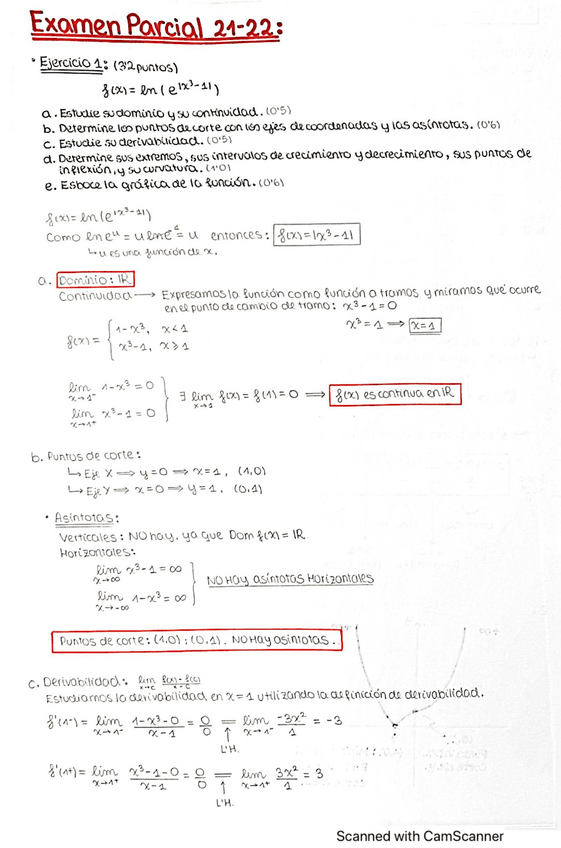 Examen Parcial 21-22:
* Ejercicio 1: (3'2 puntos)
f(x) = ln(e^|x³-1|)
a. Estudie su dominio y su continuidad. (0'5)
b. Determine los puntos de corte con los ejes de coordenadas y las asíntotas. (0'6)
c. Estudie su derivabilidad. (0'5)
d. Determine sus extremos, sus intervalos de crecimiento y decrecimiento, sus puntos de
inflexión, y su curvatura. (1'0)
e. Esboce la gráfica de la función. (0'6)
f(x) = ln(e^|x³-1|)
Como ln e^u = u ln e = u entonces: f(x) = |x³-1|
↳ u es una función de x.
a. Dominio: IR
Continuidad → Expresamos la función como función a tramos y miramos qué ocurre
en el punto de cambio de tramo: x³-1=0
x³=1 ⟹ x=1
f(x) = { 1-x³, x<1
x³-1, x⩾1
lim x→1⁻ 1-x³ = 0
lim x→1⁺ x³-1 = 0
∃ lim x→1 f(x) = f(1) = 0 ⟹ f(x) es continua en IR
b. Puntos de corte:
↳ Eje X ⟹ y=0 ⟹ x=1, (1,0)
↳ Eje Y ⟹ x=0 ⟹ y=1, (0,1)
* Asíntotas:
Verticales: NO hay, ya que Dom f(x) = IR
Horizontales:
lim x→∞ x³-1 = ∞
lim x→-∞ 1-x³ = ∞
NO Hay asíntotas Horizontales
Puntos de corte: (1,0); (0,1). NO Hay asíntotas.
c. Derivabilidad: lim x→c f(x)-f(c) / x-c
Estudiamos la derivabilidad en x=1 utilizando la definición de derivabilidad.
f'(1⁻) = lim x→1⁻ 1-x³-0 / x-1 = 0/0 = lim x→1⁻ -3x²/1 = -3
↑ L'H.
f'(1⁺) = lim x→1⁺ x³-1-0 / x-1 = 0/0 = lim x→1⁺ 3x²/1 = 3
↑ L'H.
Scanned with CamScanner